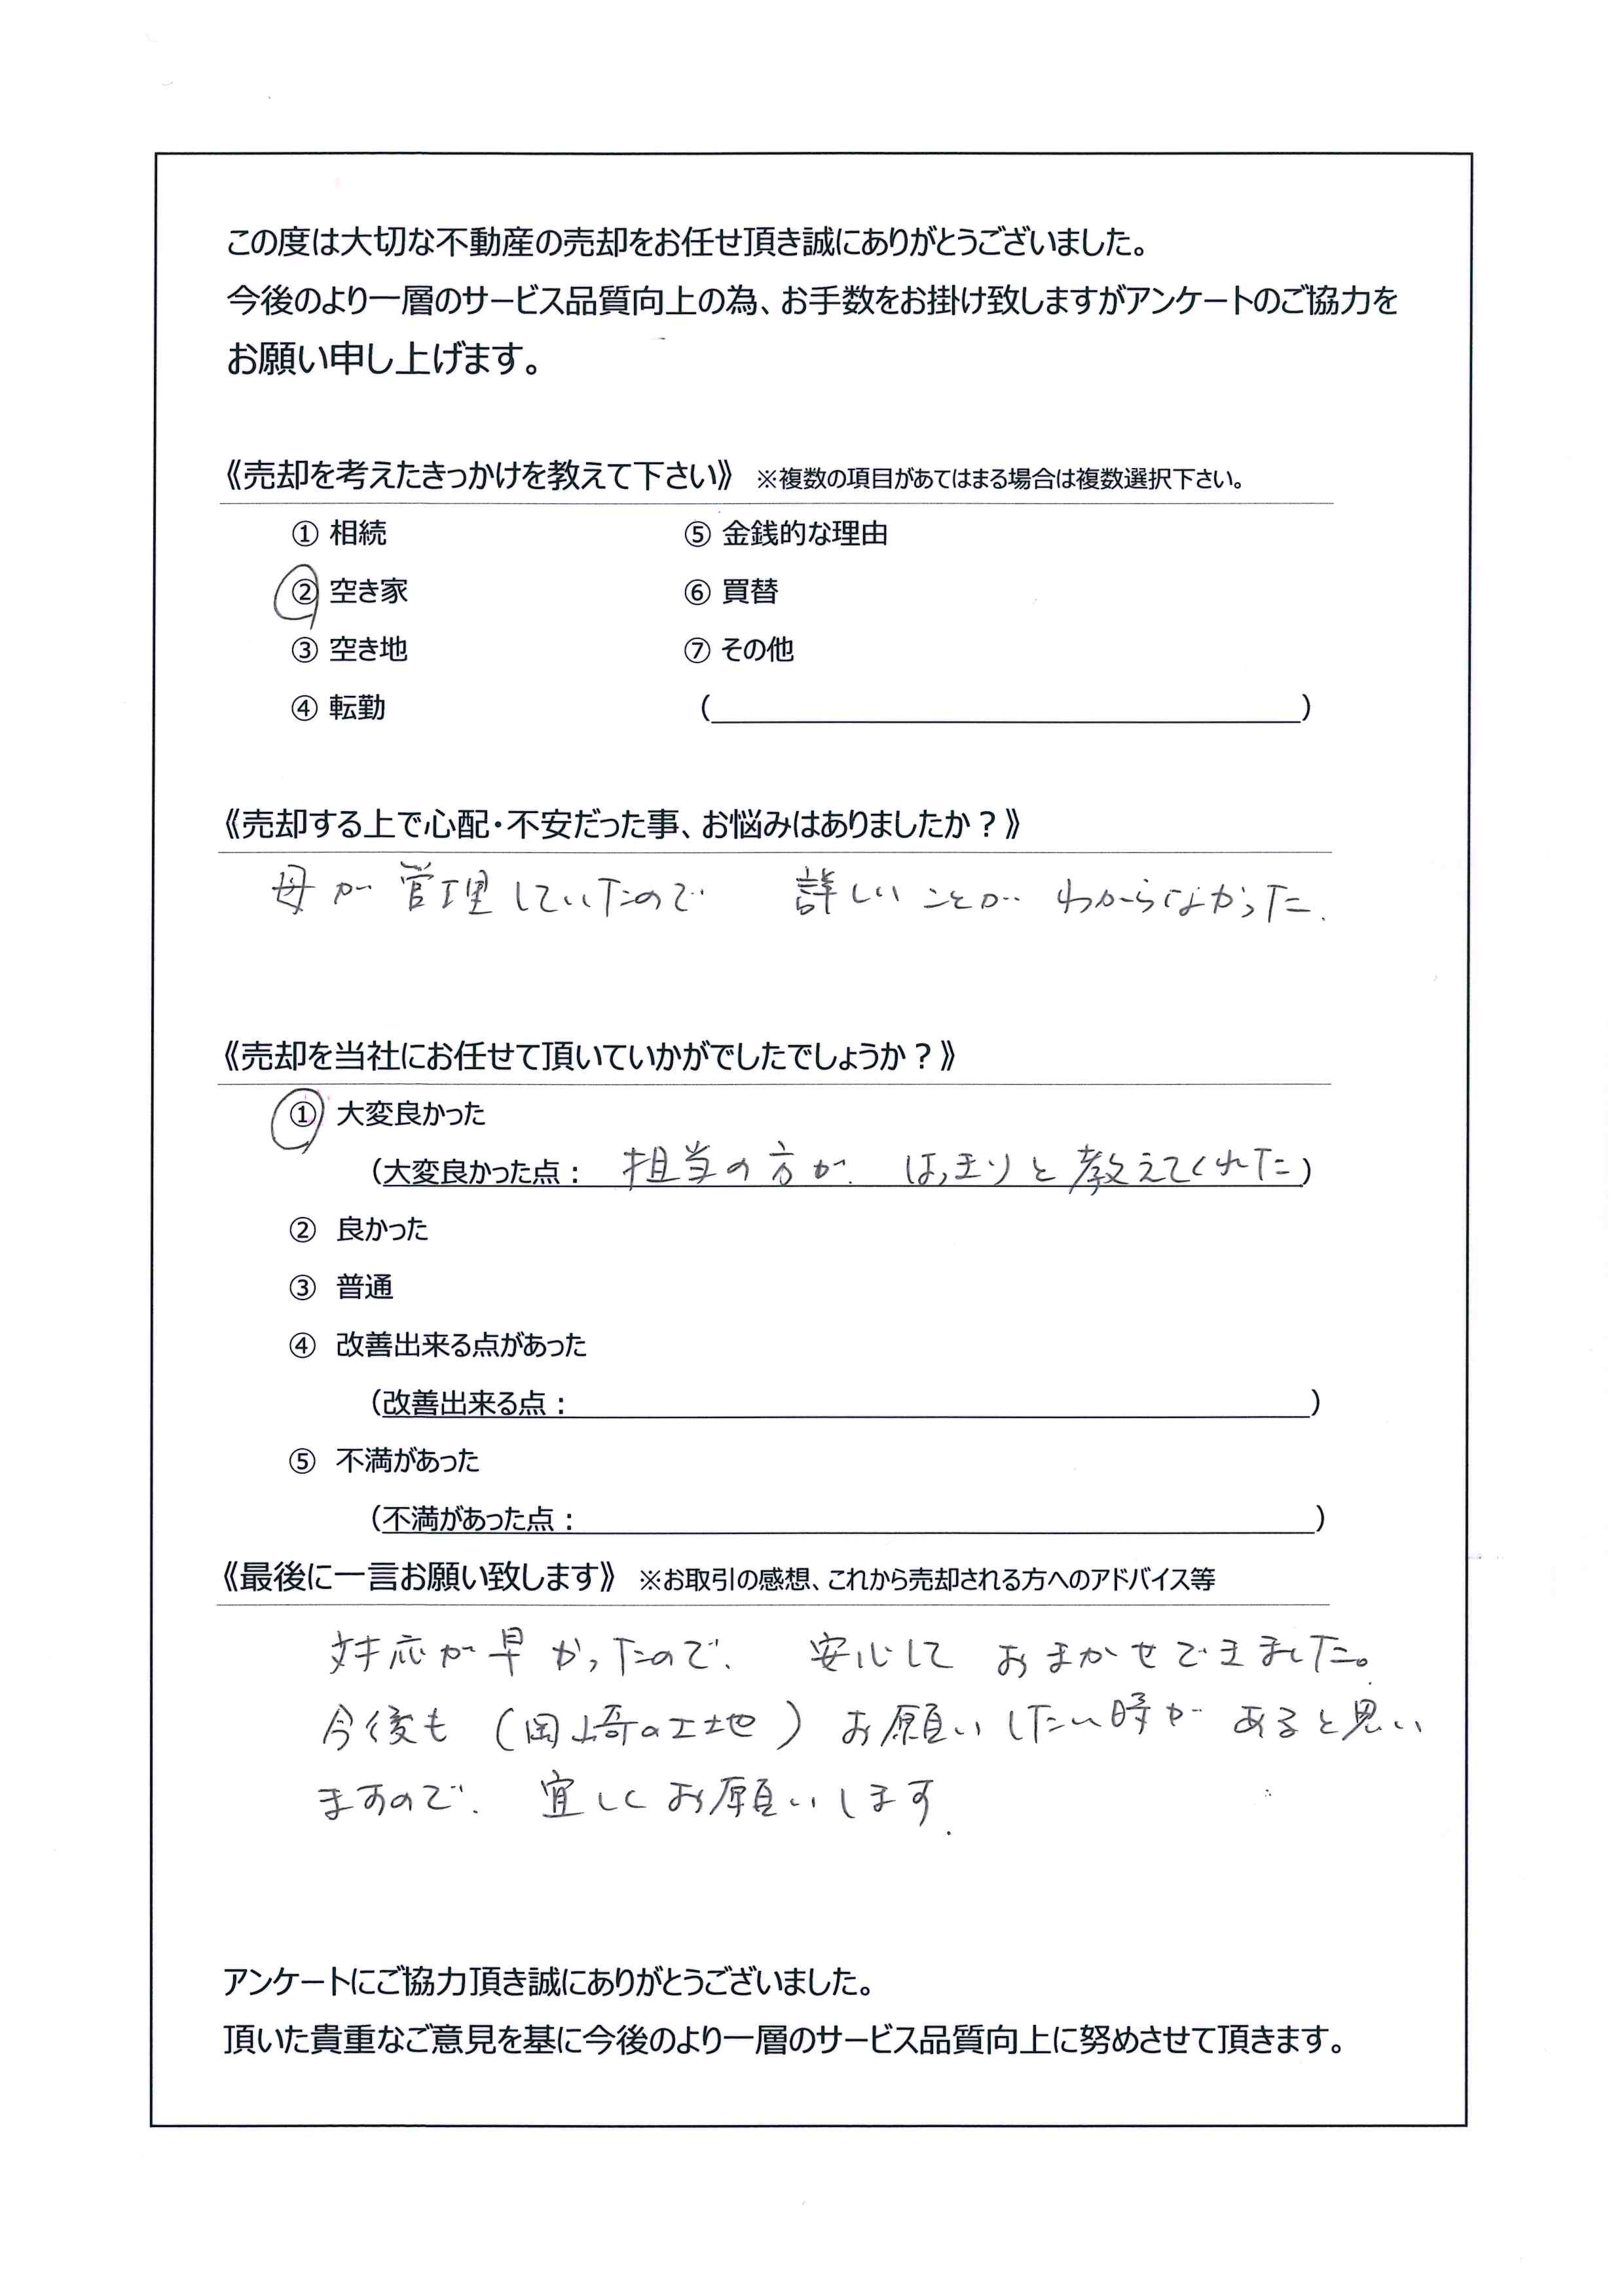 この度は大切な不動産の売却をお任せ頂き誠にありがとうございました。
今後のより一層のサービス品質向上の為、お手数をお掛け致しますがアンケートのご協力を
お願い申し上げます。
《売却を考えたきっかけを教えて下さい》 ※複数の項目があてはまる場合は複数選択下さい。
① 相続 ⑤ 金銭的な理由
② 空き家 ⑥ 買替
③ 空き地 ⑦ その他
④ 転勤 （ ）
《売却する上で心配・不安だった事、お悩みはありましたか？》
母が管理していたので 詳しいことが わからなかった.
《売却を当社にお任せて頂いていかがでしたでしょうか？》
① 大変良かった
（大変良かった点： 担当の方が はっきりと教えてくれた）
② 良かった
③ 普通
④ 改善出来る点があった
（改善出来る点： ）
⑤ 不満があった
（不満があった点： ）
《最後に一言お願い致します》 ※お取引の感想、これから売却される方へのアドバイス等
対応が早かったので、安心して おまかせできました。
今後も（岡崎の土地）お願いしたい時が あると思い
ますので、宜しくお願いします.
アンケートにご協力頂き誠にありがとうございました。
頂いた貴重なご意見を基に今後のより一層のサービス品質向上に努めさせて頂きます。